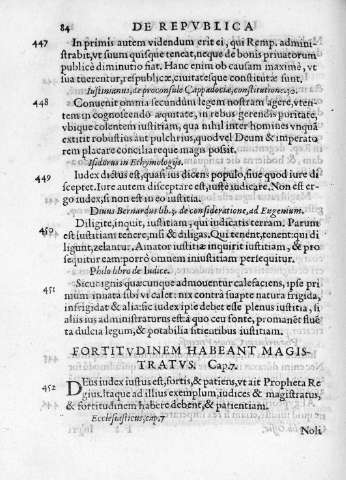 84 DE REPVBLICA
447 In primis autem videndum erit ei, qui Remp. admini-
strabit, vt suum quisque teneat, neque de bonis priuatorum
publicè diminutio fiat. Hanc enim ob causam maximè, vt
sua tuerentur, respublicæ, ciuitatesque constitutæ sunt.
Iustinianus, de proconsule Cappadotiæ, constitutione. 30.
448 Conuenit omnia secundùm legem nostram agere, vten-
tem in cognoscendo æquitate, in rebus gerendis puritate,
vbique colentem iustitiam, qua nihil inter homines vnquā
extitit robustius aut pulchrius, quodvel Deum & imperato
rem placare conciliareque magis possit.
Isidorus in Ethymologijs.
449 Iudex dictus est, quasi ius dicens populo, siue quod iure di
sceptet. Iure autem disceptare est, iustè iudicare. Non est er-
go iudex, si non est in eo iustitia.
Diuus Bernardus lib. 5. de consideratione, ad Eugenium.
450 Diligite, inquit, iustitiam, qui iudicatis terram. Parum
est iustitiam tenere, nisi & diligas. Qui tenent, tenent: qui di
ligunt, zelantur. Amator iustitiæ inquirit iustitiam, & pro
sequitur eam: porrò omnem iniustitiam persequitur.
Philo libro de Iudice.
451 Sicut ignis quæcunque admouentur calefaciens, ipse pri
mum innata sibi vi calet: nix contrà suapte natura frigida,
infrigidat & alia: sic iudex ipse debet esse plenus iustitia, si
alijs ius administraturus est: à quo ceu fonte, promanēt flue̅
ta dulcia legum, & potabilia sitientibus iustitiam.
FORTITVDINEM HABEANT MAGIS-
TRATVS. Cap. 7.
452 DEus iudex iustus est, fortis, & patiens, vt ait Propheta Re
gius. Itaque ad illius exemplum, iudices & magistratus,
& fortitudinem habere debent, & patientiam.
Ecclesiasticus, cap. 7
Noli